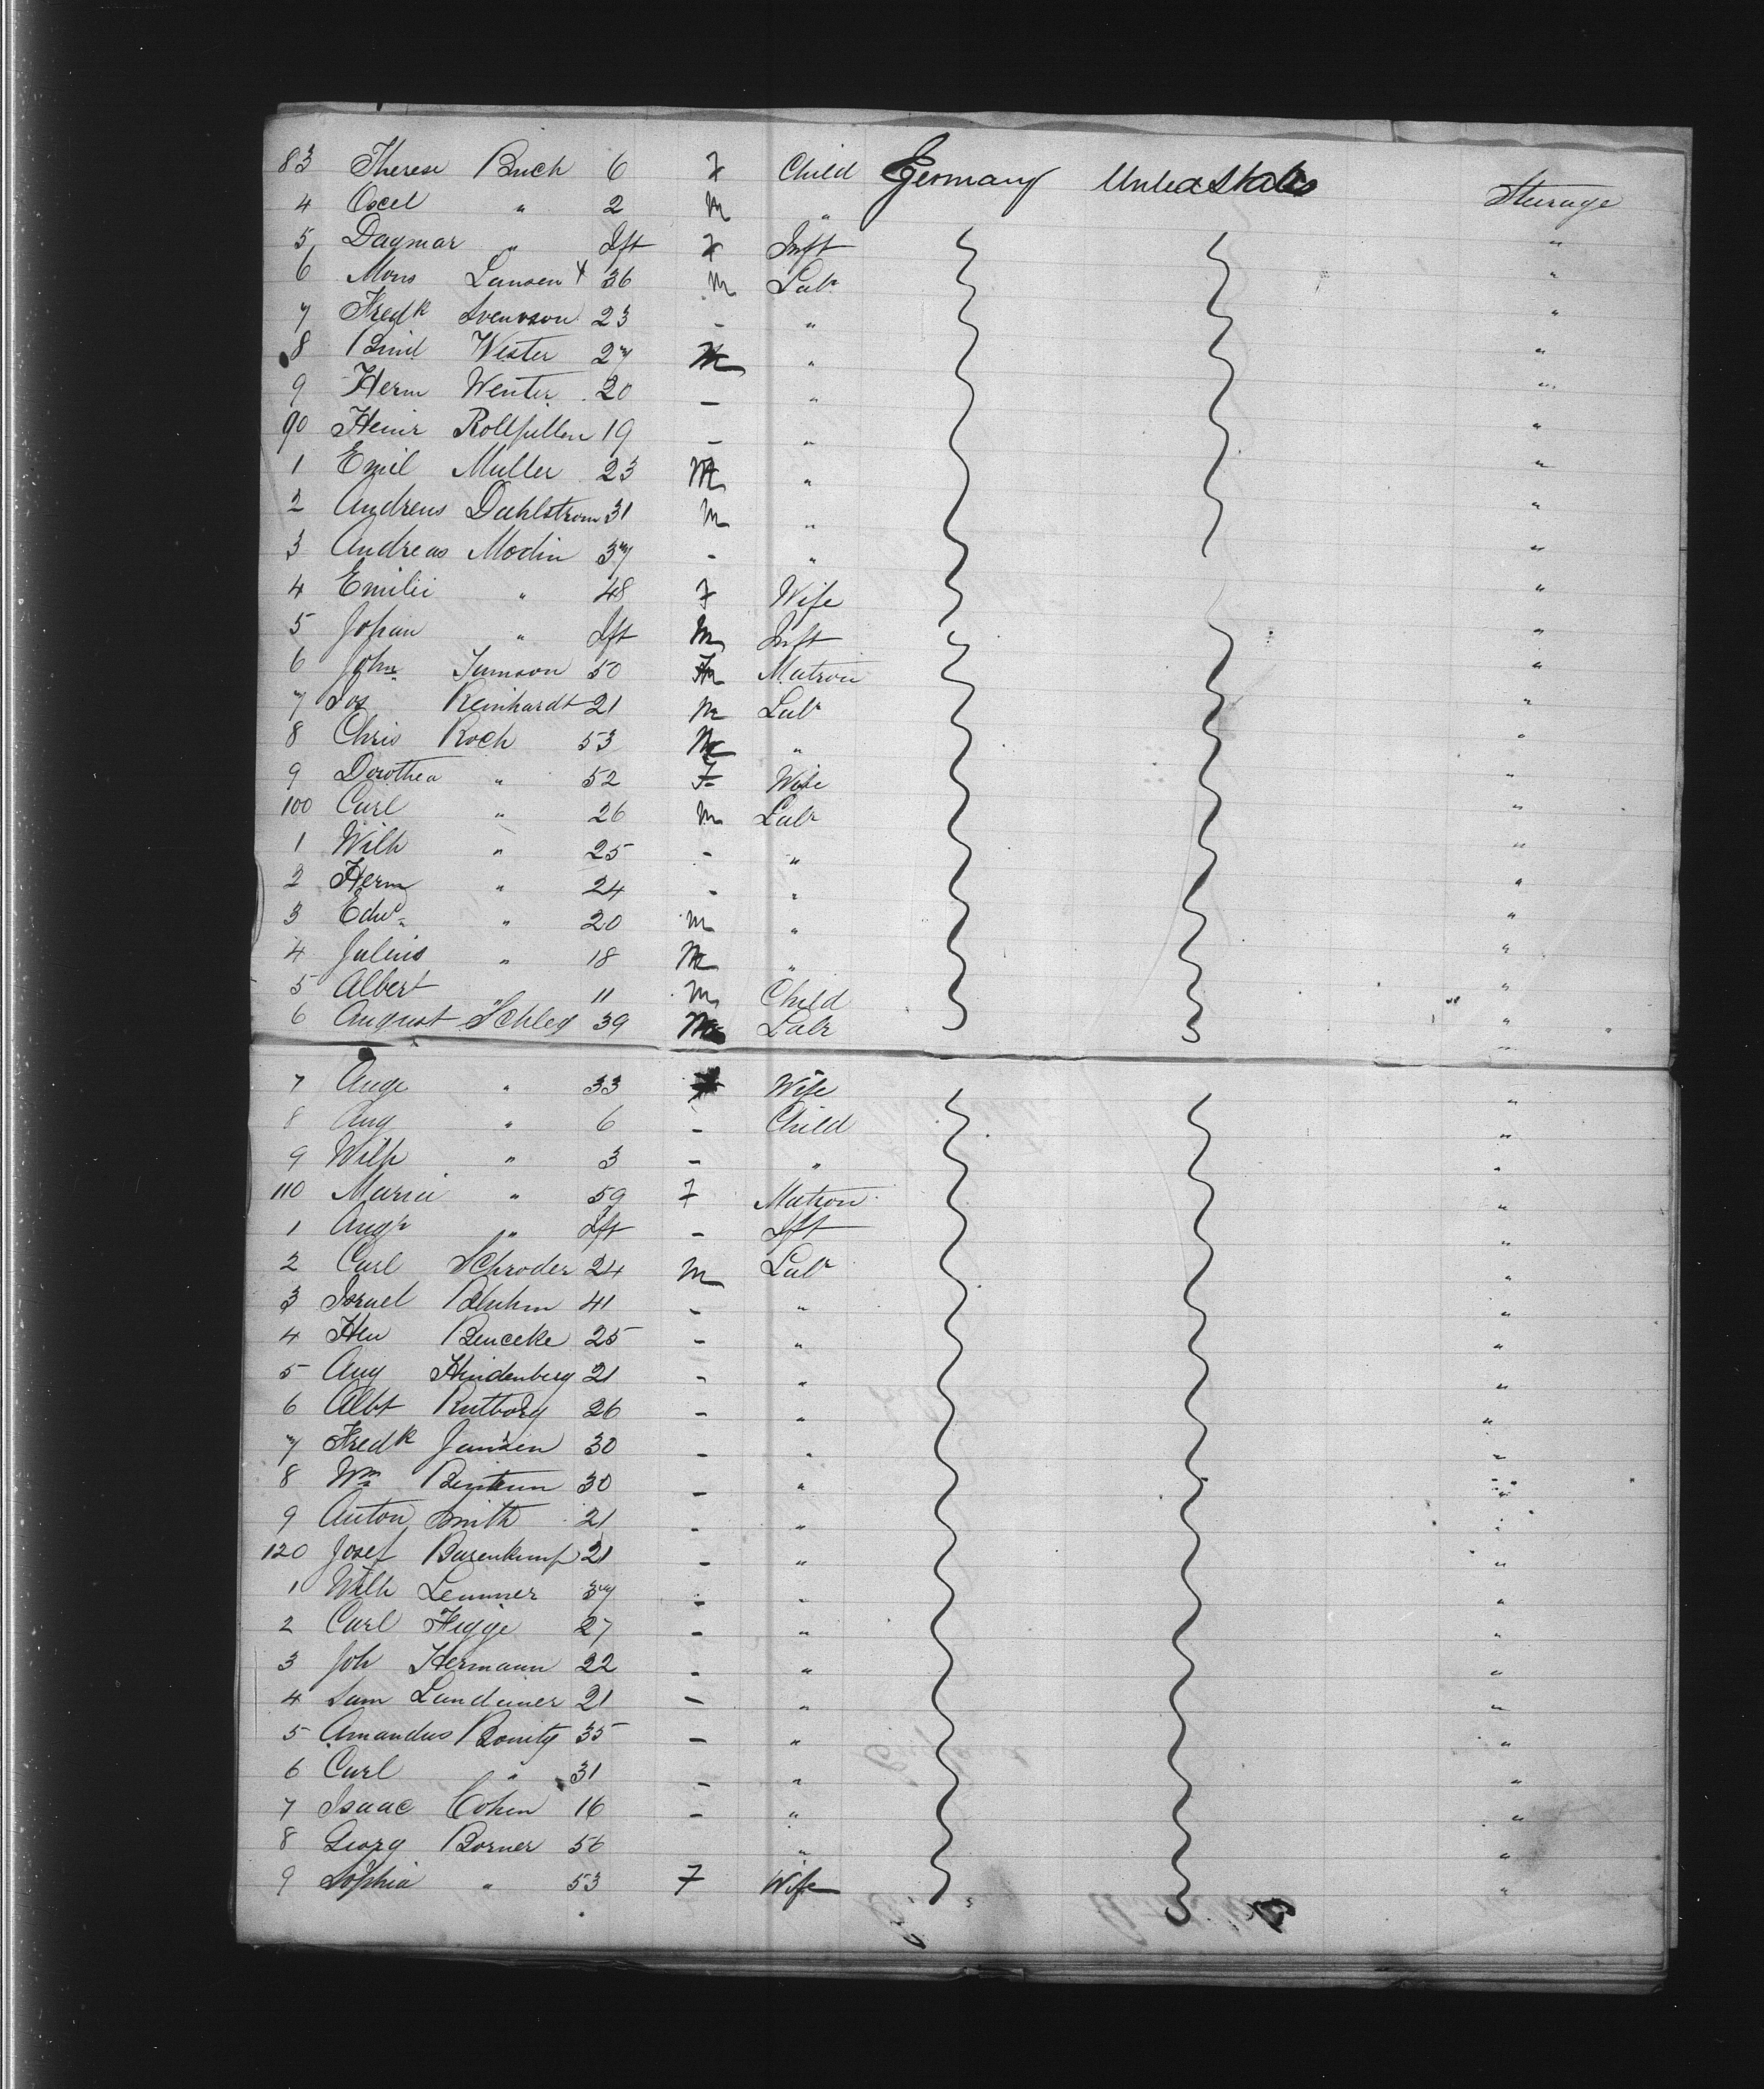 83 Therese Buch 6 F Child Germany United States Steerage
4 Oscel " 2 M "
5 Dagmar " Ift F Inft "
6 Mons Lansen x 36 M Labr "
7 Fredk Svensson 23 - " "
8 Wester 27 M " "
9 Herm Wenter 20 - " "
90 Heinr 19 - " "
1 Emil Muller 23 M " "
2 Andreus Dahlstrom 31 M " "
3 Andreas Modin 37 - " "
4 Emilie " 48 F Wife "
5 Johan " Ift M Inft "
6 John 50 Matron "
7 Jos Reinhardt 21 M Labr "
8 Chris Koch 53 M " "
9 Dorothea " 52 F Wife "
100 Carl " 26 M Labr "
1 Wilh " 25 - " "
2 Herm " 24 - " "
3 Edw " 20 M " "
4 Julius " 18 M " "
5 Albert " 11 M Child "
6 August Schley 39 M Labr "
7 Auge " 33 F Wife "
8 Aug " 6 - Child "
9 Wilh " 3 - " "
110 Maria " 59 F Matron "
1 " Ift - Ift "
2 Carl Schroder 24 M Labr "
3 Israel Bluhm 41 - " "
4 Hen Benecke 25 - " "
5 Aug Hindenberg 21 - " "
6 Albt Rutborg 26 - " "
7 Fredk Jansen 30 - " "
8 Wm 30 - " "
9 Anton Smith 21 - " "
120 Josef Barenkamp 21 - " "
1 Wilh Lemmer 37 - " "
2 Carl Hegge 27 - " "
3 Joh Hermann 22 - " "
4 Sam Landauer 21 - " "
5 Amandus Bonity 35 - " "
6 Carl " 31 - " "
7 Isaac Cohen 16 - " "
8 Georg Borner 56 " "
9 Sophia " 53 F Wife "